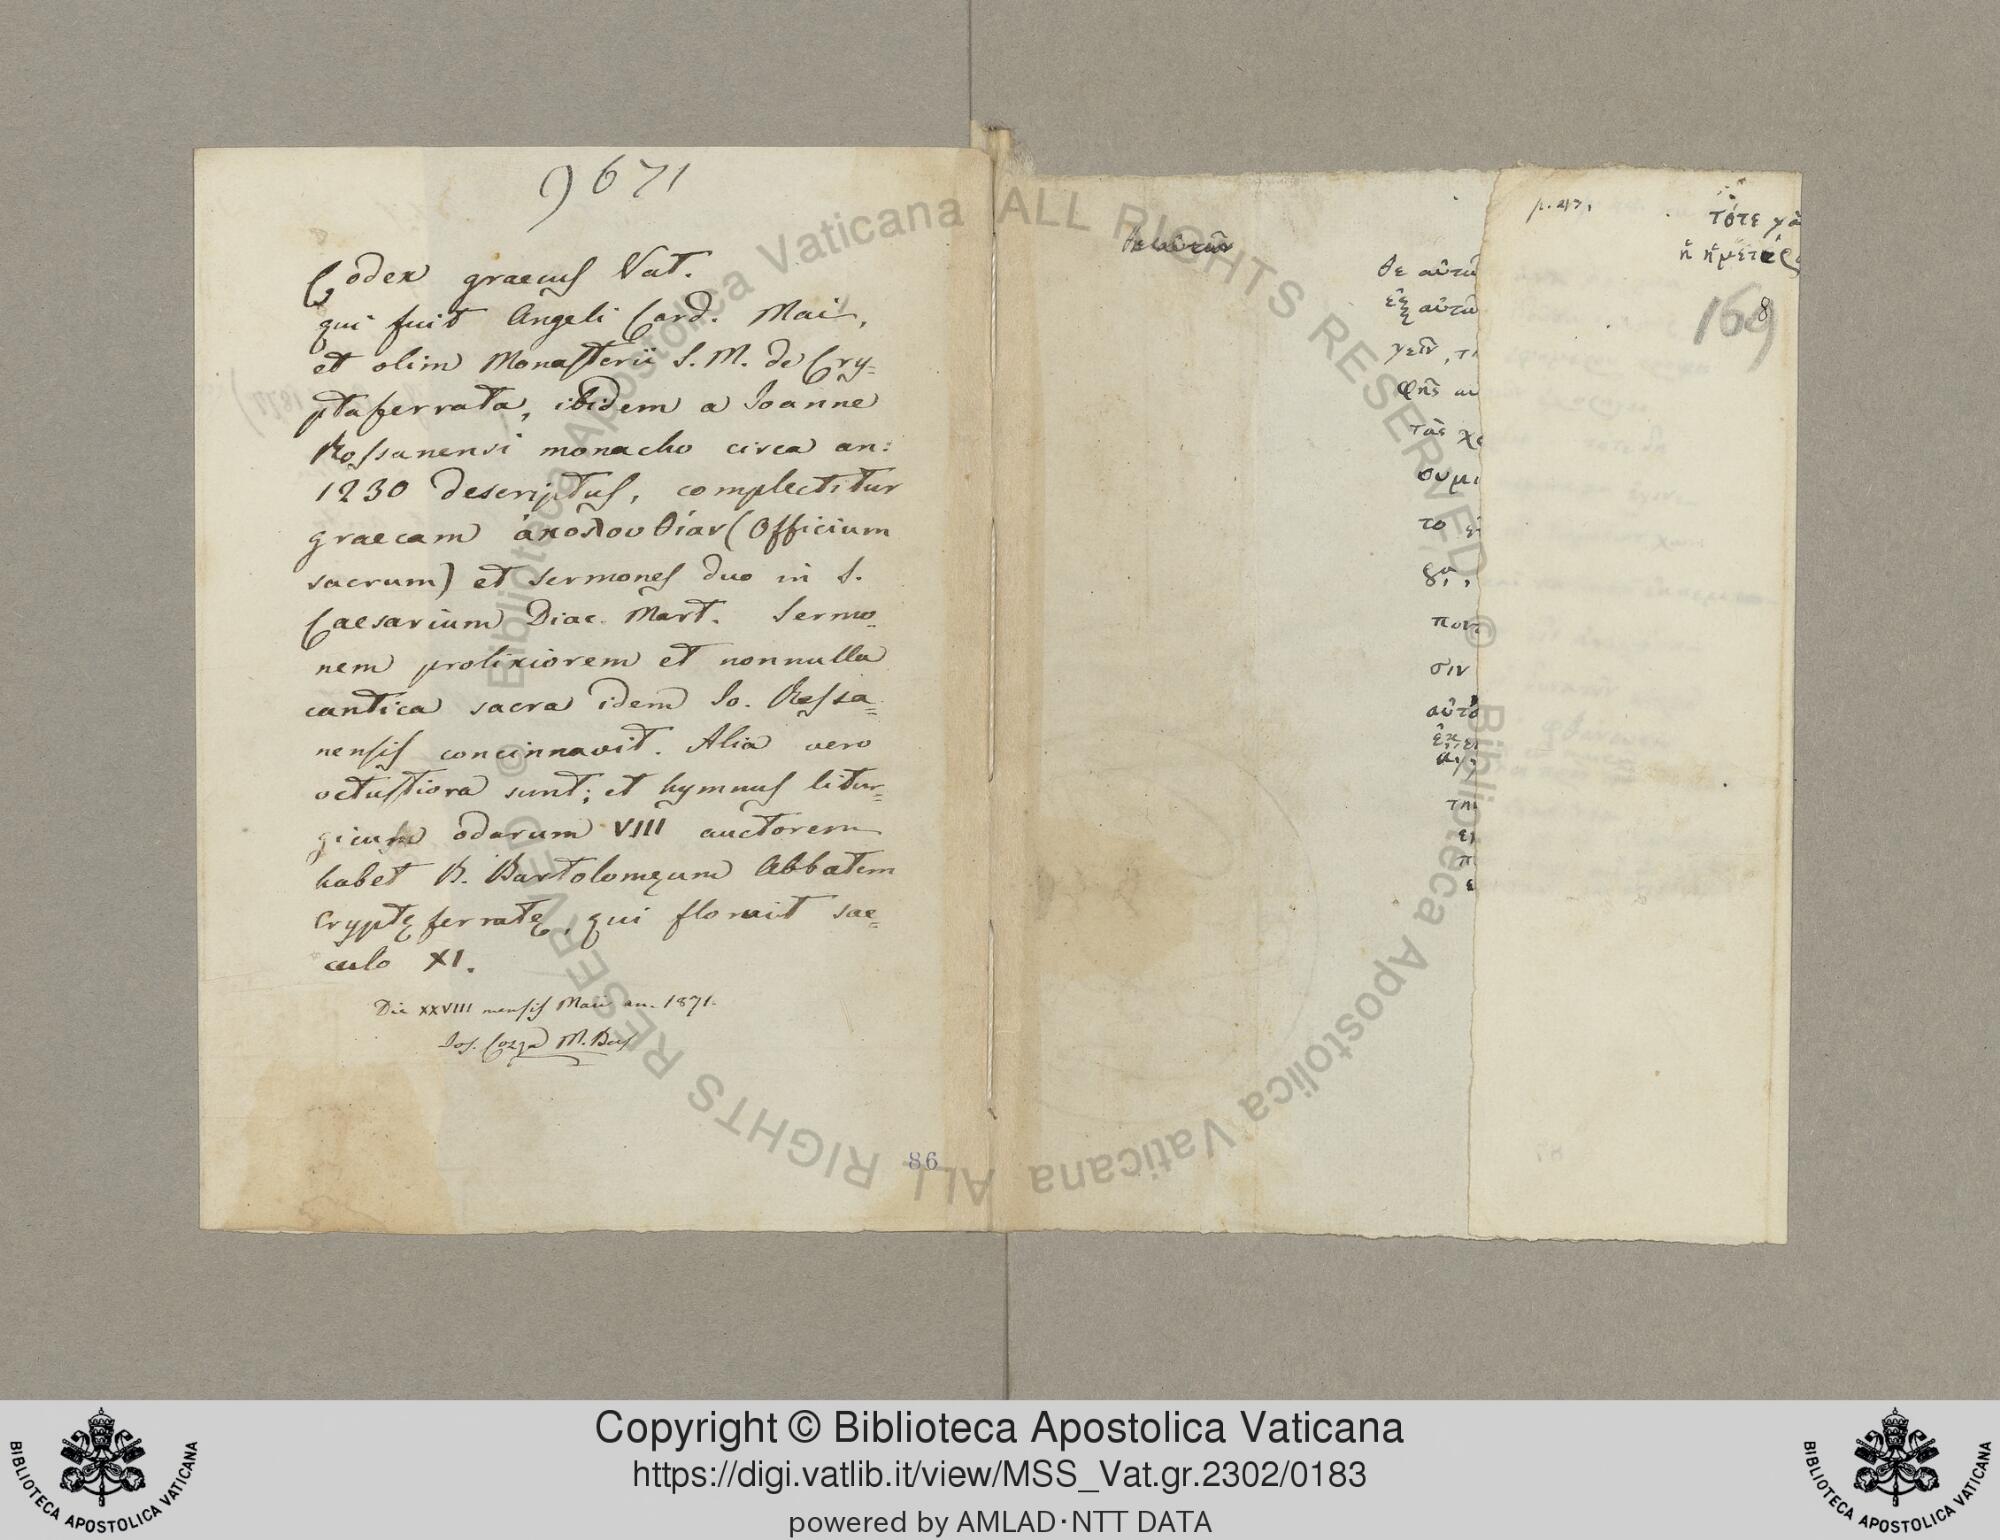 9671
Codex graecus Vat.
qui fuit Angeli Card. Mai,
et olim Monasterii S. M. de Cry=
ptaferrata, ibidem a Joanne
Rossanensi monacho circa an:
1230 descriptus, complectitur
graecam ἀκολουθίαν (Officium
sacrum) et sermones duo in S.
Caesarium Diac. Mart. Sermo=
nem prolixiorem et nonnulla
cantica sacra idem Jo. Rossa=
nensis concinnavit. Alia vero
vetustiora sunt; et hymnus litur=
gicus odarum VIII auctorem
habet B. Bartolomęum Abbatem
Cryptęferratę, qui floruit sae=
culo XI.
Die XXVIII mensis Maii an. 1871.
Jos. Cozza M. Bas
86
θε αὐτῶ
ἐξ αὐτῶ
γεῖν, τι
φῆς
τὰς χε
συμ
το
ποντ
σιν
αὐτὸ
τότε γὰ
ἡ ἡμετέρ
169
8
Copyright © Biblioteca Apostolica Vaticana
https://digi.vatlib.it/view/MSS_Vat.gr.2302/0183
powered by AMLAD·NTT DATA
BIBLIOTECA APOSTOLICA VATICANA
BIBLIOTECA APOSTOLICA VATICANA
© Biblioteca Apostolica Vaticana ALL RIGHTS RESERVED
© Biblioteca Apostolica Vaticana ALL RIGHTS RESERVED